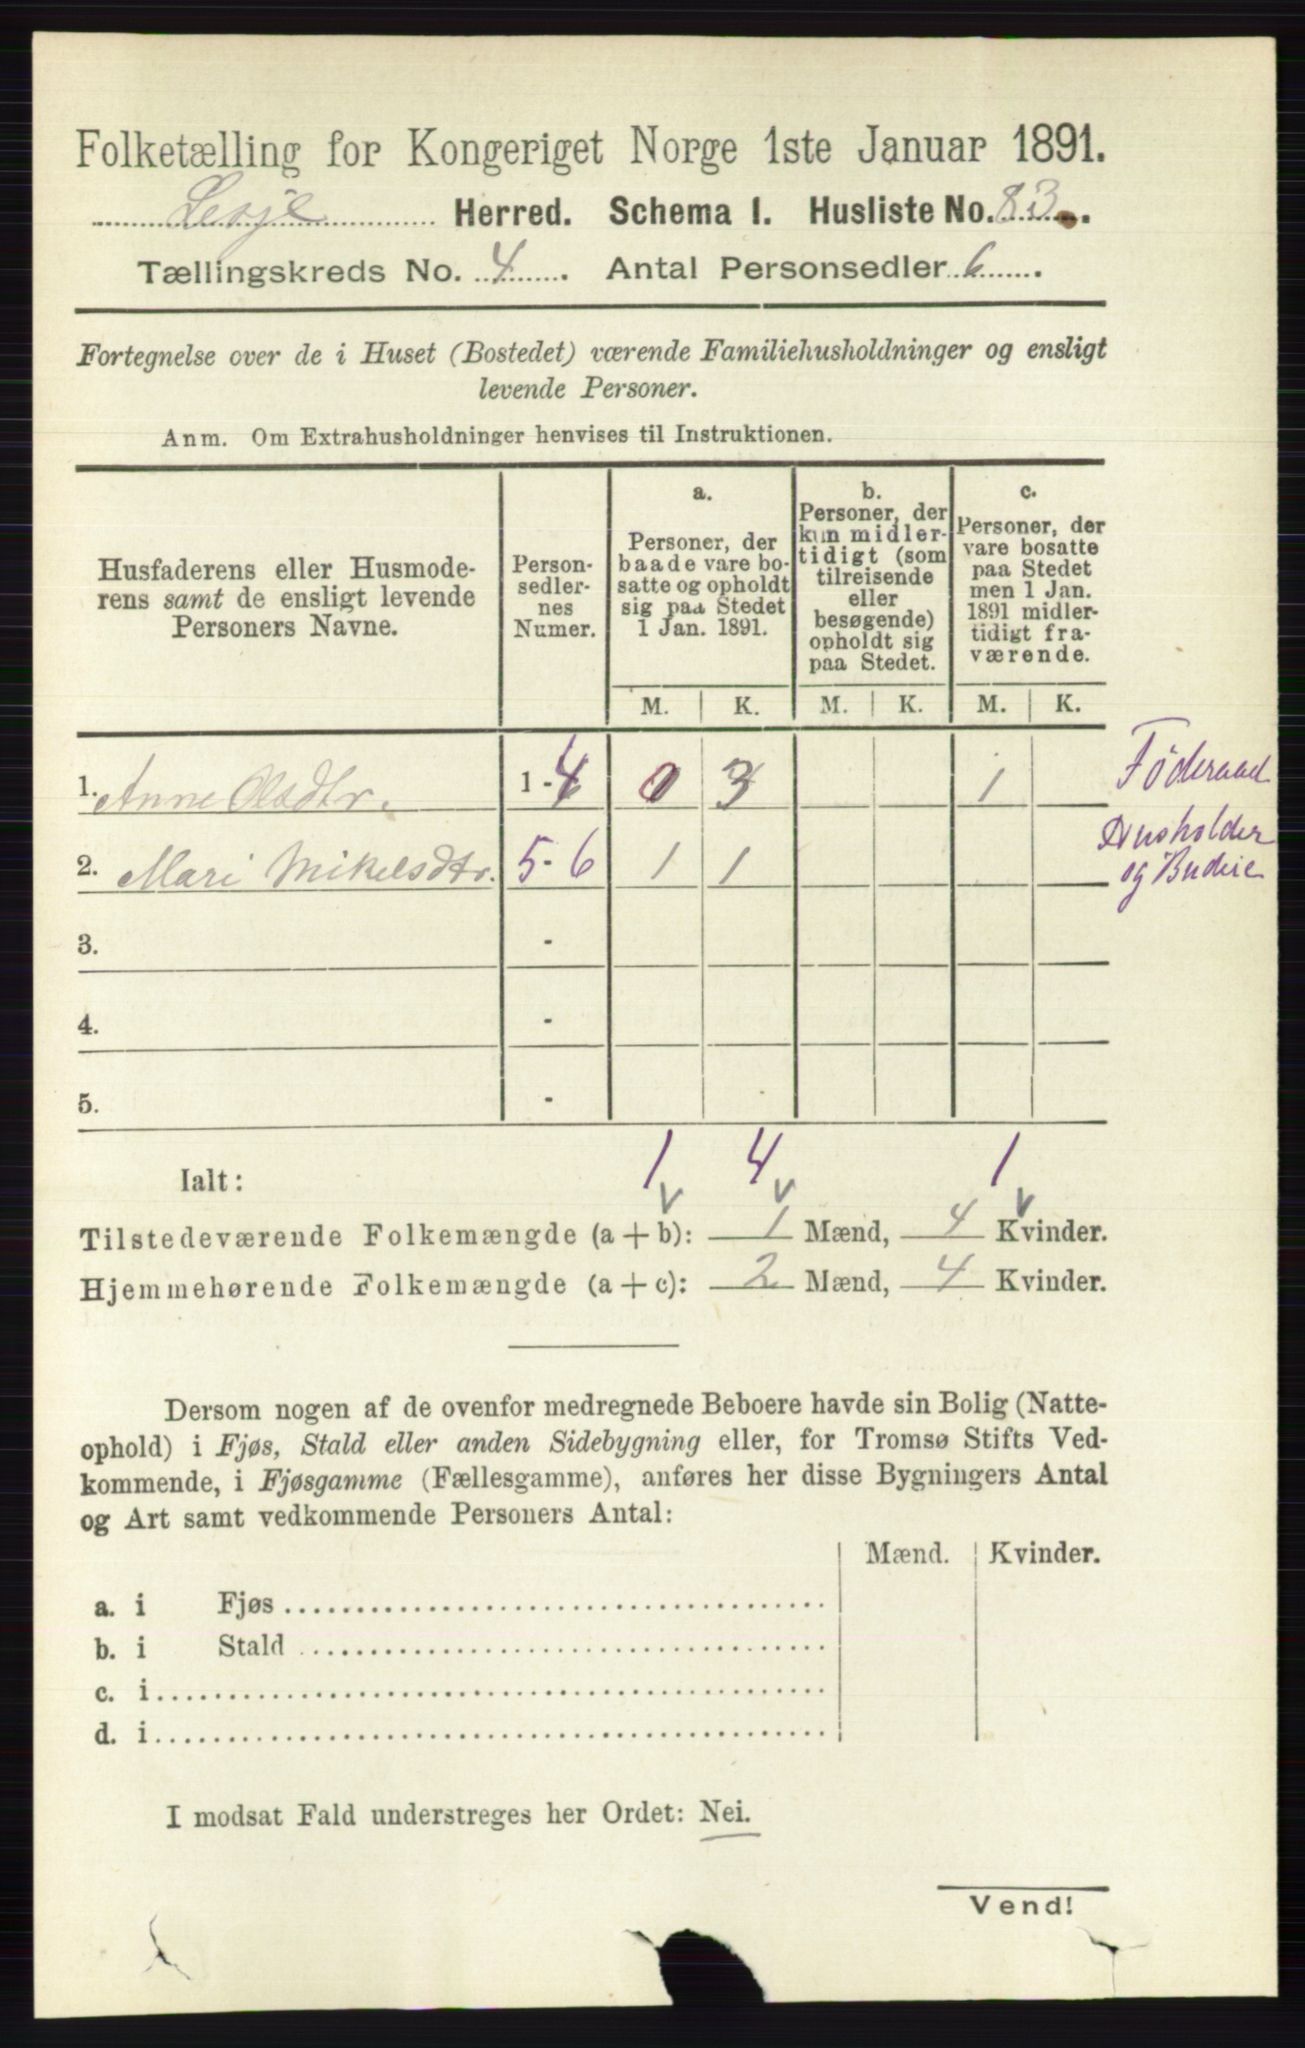 Folketælling for Kongeriget Norge 1ste Januar 1891.
Lesje Herred. Schema I. Husliste No. 83.
Tællingskreds No. 4. Antal Personsedler 6.
Fortegnelse over de i Huset (Bostedet) værende Familiehusholdninger og ensligt
levende Personer.
Anm. Om Extrahusholdninger henvises til Instruktionen.
Husfaderens eller Husmode-
rens samt de ensligt levende
Personers Navne.
Person-
sedler-
nes
Numer.
a.
Personer, der
baade vare bo-
satte og opholdt
sig paa Stedet
1 Jan. 1891.
b.
Personer, der
kun midler-
tidigt (som
tilreisende
eller
besøgende)
opholdt sig
paa Stedet.
c.
Personer, der
vare bosatte
paa Stedet
men 1 Jan.
1891 midler-
tidigt fra-
værende.
M. K. M. K. M. K.
1. Anne Olsdtr. 1-4 0 3 1 Föderaad
2. Mari Mikelsdtr. 5-6 1 1 Husholder
og Budeie
3. -
4. -
5. -
Ialt: 1 4 1
Tilstedeværende Folkemængde (a + b): 1 Mænd, 4 Kvinder.
Hjemmehørende Folkemængde (a + c): 2 Mænd, 4 Kvinder.
Dersom nogen af de ovenfor medregnede Beboere havde sin Bolig (Natte-
ophold) i Fjøs, Stald eller anden Sidebygning eller, for Tromsø Stifts Ved-
kommende, i Fjøsgamme (Fællesgamme), anføres her disse Bygningers Antal
og Art samt vedkommende Personers Antal:
Mænd. Kvinder.
a. i Fjøs
b. i Stald
c. i
d. i
I modsat Fald understreges her Ordet: Nei.
Vend!